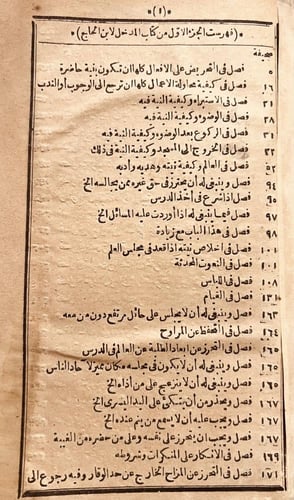 *(١)*
*(فهرست الجزء الاول من كتاب المدخل لابن الحاج)*
صحيفة
٥ فصل فى التحريض على الافعال كلها ان تكون بنية حاضرة
١٦ فصل فى كيفية محاولة الاعمال كلها ان ترجع الى الوجوب أو الندب
٢١ فصل فى الاستبراء وكيفية النية فيه
٢٨ فصل فى الوضوء وكيفية النية فيه
٣١ فصل فى الركوع بعد الوضوء وكيفية النية فيه
٣٢ فصل فى الخروج الى المسجد وكيفية النية فى ذلك
٥٢ فصل فى العالم وكيفية نيته وهديه وأدبه
٩٤ فصل وينبغى له أن يحترز فى حق غيره ممن يجالسه الخ
٩٥ فصل اذا شرع فى أخذ الدرس
٩٧ فصل فيما ينبغى له اذا أوردت عليه المسائل الخ
٩٨ فصل فى هذا الباب مع زيادة
١٠١ فصل فى اخلاص نيته اذا قعد فى مجلس العلم
١٠١ فصل فى النعوت المحدثة
١٠٨ فصل فى اللباس
١٣١ فصل فى القيام
١٦٣ فصل وينبغى له أن لا يجلس على حائل مرتفع دون من معه
١٦٤ فصل فى التحفظ عن المراوح
١٦٥ فصل فى التحرز عن ابعاد الطلبة عن العالم فى الدرس
١٦٥ فصل وينبغى له أن لا يكون فى مجلسه مكان مميز لآحاد الناس
١٦٥ فصل وينبغى له أن لا ينزعج على من آذاه الخ
١٦٧ فصل ويحذر من أن يتكئ على اليد اليسرى الخ
١٦٧ فصل ويجب عليه أن لا يسمع من ينم عنده الخ
١٦٧ فصل ويجب ان يتحرز على نفسه وعلى من حضره من الغيبة
١٦٩ فصل فى الانكار على المنكرات وشروطه
١٧١ فصل فى التحرز عن المزاح الخارج عن حد الوقار وفيه رجوع الى